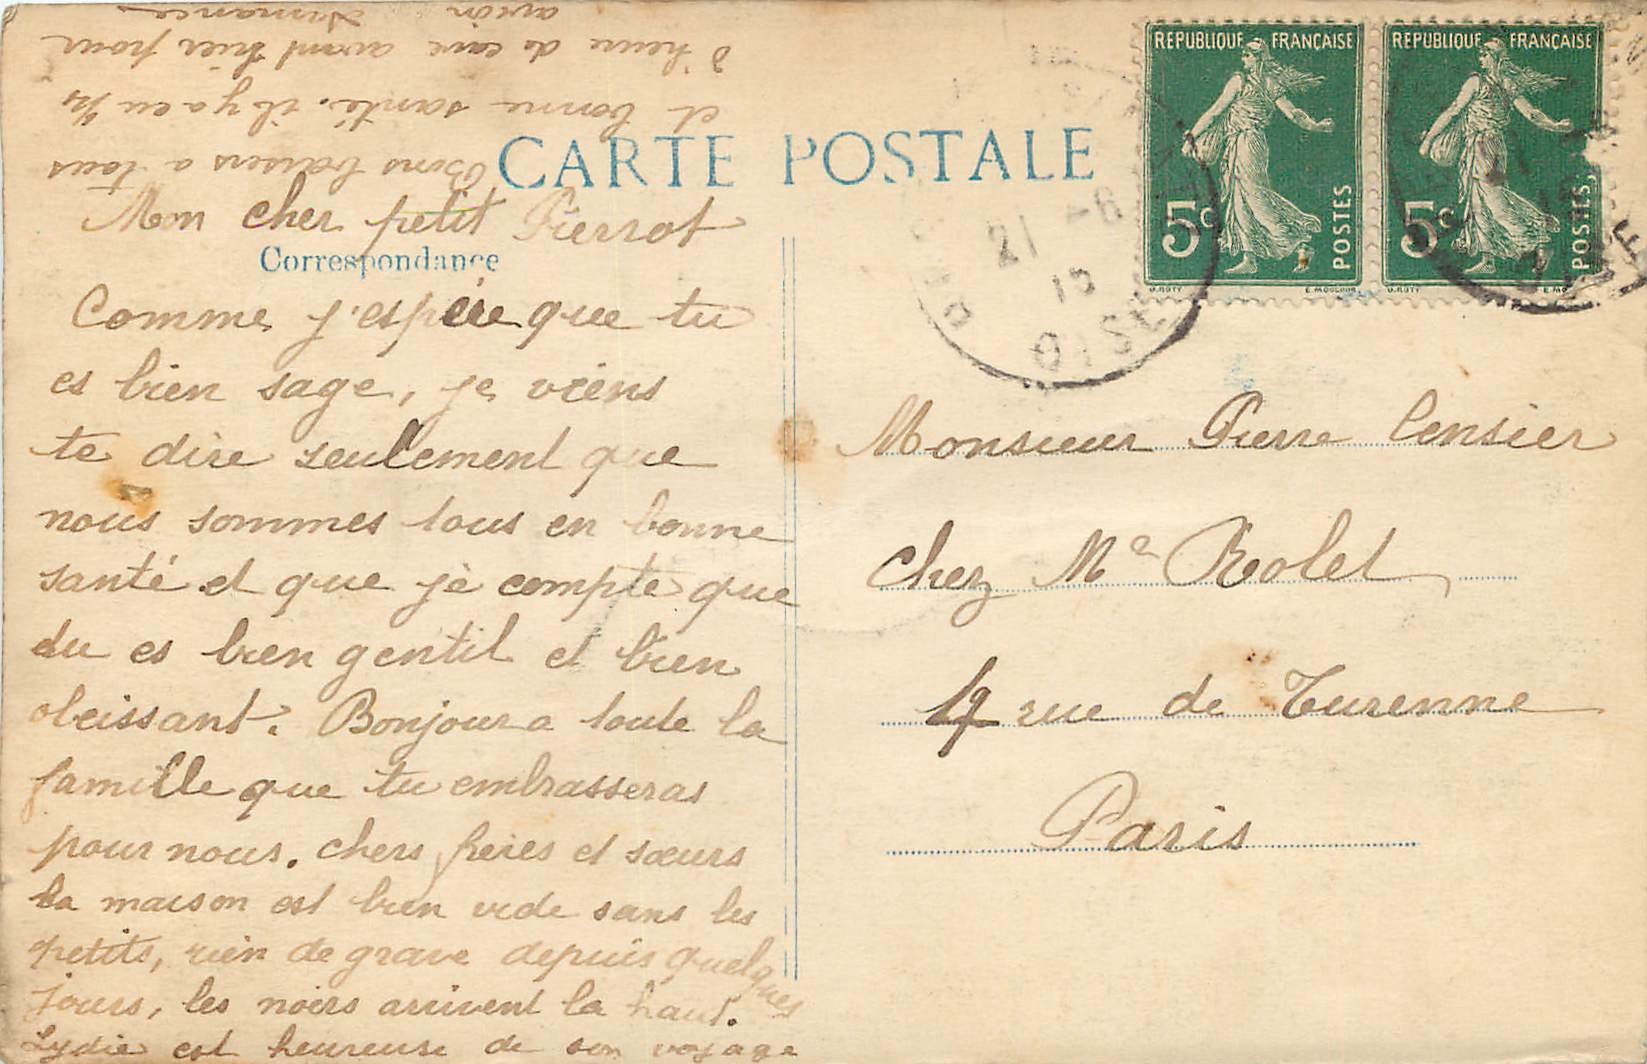 CARTE POSTALE
Correspondance
Mon cher petit Pierrot
Comme j'espère que tu
es bien sage, je viens
te dire seulement que
nous sommes tous en bonne
santé et que je compte que
du es bien gentil et bien
obeissant. Bonjour a toute la
famille que tu embrasseras
pour nous. chers frères et sœurs
la maison est bien vide sans les
petits, rien de grave depuis quelques
jours, les noirs arrivent la haut.
Lydie est heureuse de son voyage
Bons baisers a tous
et bonne santé. il y a eu
d'heure de cave avant hier pour
avion
REPUBLIQUE FRANÇAISE
5c
POSTES
O. ROTY
E. MOUCHON
REPUBLIQUE FRANÇAISE
5c
POSTES
O. ROTY
E. MO
21 -6
15
OISE
Monsieur Pierre Censier
chez Me Rolet
rue de Turenne
Paris